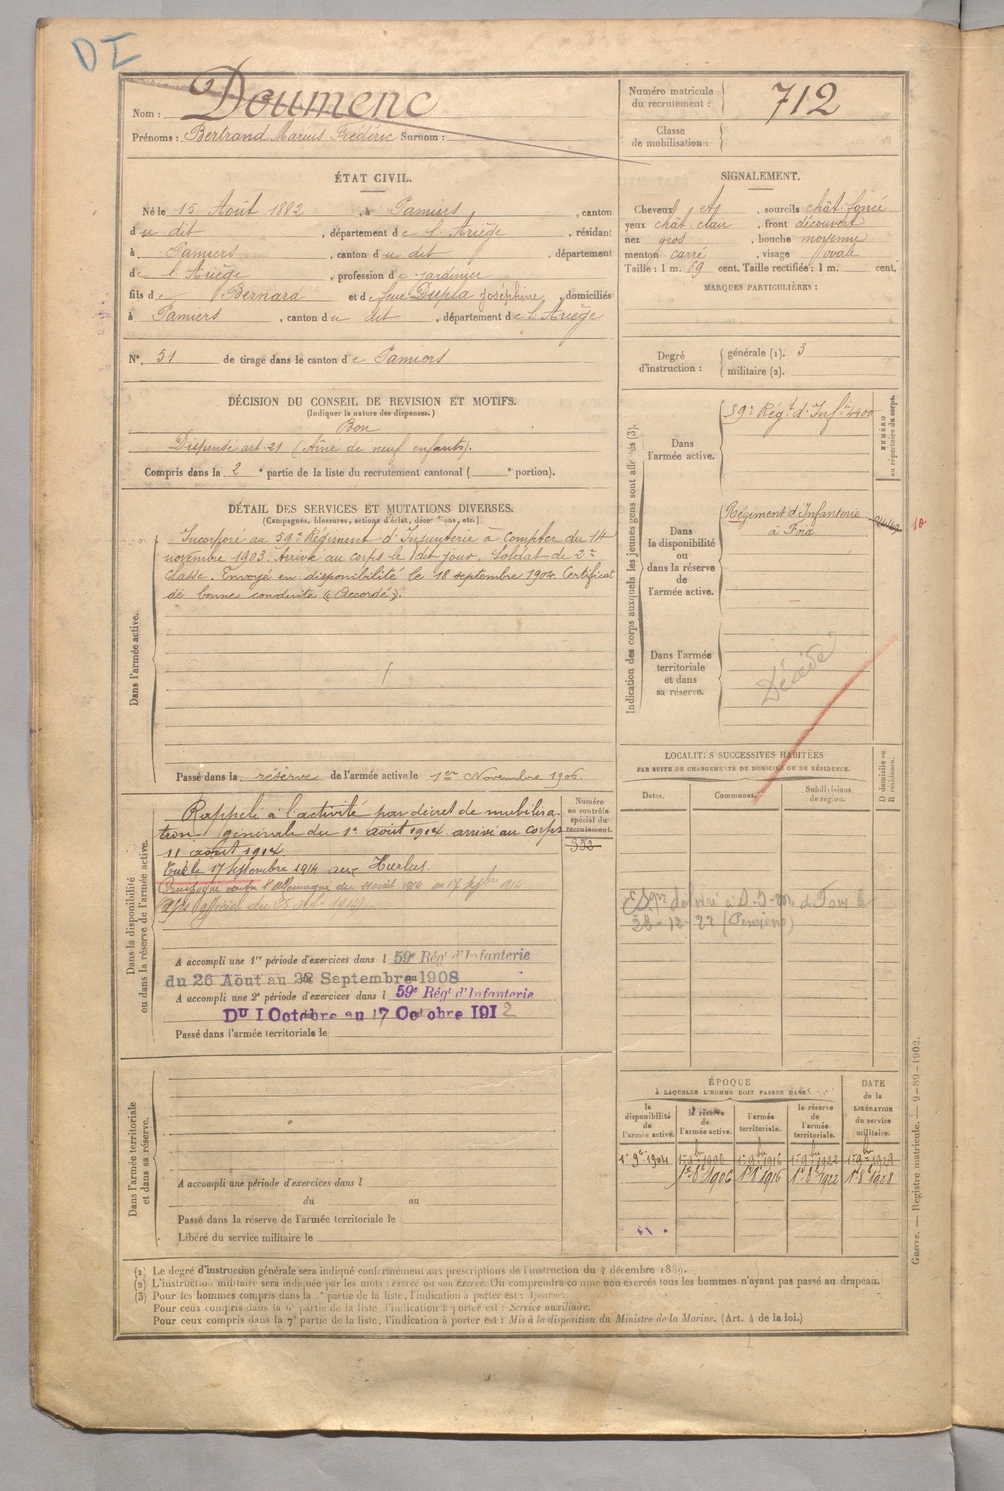 DI
Nom : Doumenc
Prénoms : Bertrand Marius Frédéric Surnom :
Numéro matricule du recrutement : 712
Classe de mobilisation :
ÉTAT CIVIL.
Né le 15 Août 1882, à Pamiers, canton
du dit, département de l'Ariège, résidant
à Pamiers, canton du dit, département
de l'Ariège, profession de jardinier
fils de Bernard et de feue Dupla Joséphine, domiciliés
à Pamiers, canton du dit, département de l'Ariège
N° 51 de tirage dans le canton de Pamiers
SIGNALEMENT.
Cheveux et, sourcils chât. foncé
yeux chât. clair, front découvert
nez gros, bouche moyenne
menton carré, visage ovale
Taille : 1 m. 69 cent. Taille rectifiée : 1 m. cent.
MARQUES PARTICULIÈRES :
Degré d'instruction :
générale (1). 3
militaire (2).
DÉCISION DU CONSEIL DE REVISION ET MOTIFS.
(Indiquer la nature des dispenses.)
Bon
Dispensé art. 21 (Aîné de neuf enfants).
Compris dans la 2e partie de la liste du recrutement cantonal ( e portion).
DÉTAIL DES SERVICES ET MUTATIONS DIVERSES.
(Campagnes, blessures, actions d'éclat, décorations, etc.)
Dans l'armée active.
Incorporé au 59e Régiment d'Infanterie à compter du 14
novembre 1903. Arrivé au corps le dit jour. Soldat de 2e
classe. Envoyé en disponibilité le 18 septembre 1904. Certificat
de bonne conduite « Accordé ».
Passé dans la réserve de l'armée active le 1er Novembre 1906.
Indication des corps auxquels les jeunes gens sont affectés (3).
NUMÉRO au répertoire du corps.
Dans l'armée active.
59e Régt d'Infie 4400
Dans la disponibilité ou dans la réserve de l'armée active.
Régiment d'Infanterie
à Foix
10
Dans l'armée territoriale et dans sa réserve.
Décédé
LOCALITÉS SUCCESSIVES HABITÉES
PAR SUITE DE CHANGEMENTS DE DOMICILE OU DE RÉSIDENCE.
D domicile ou R résidence.
Dates.
Communes.
Subdivisions de région.
28-12-22 (Pensions)
Dans la disponibilité ou dans la réserve de l'armée active.
Numéro au contrôle spécial du recrutement.
352
Rappelé à l'activité par décret de mobilisa-
tion générale du 1er août 1914 arrivé au corps
11 août 1914.
Tué le 17 septembre 1914 aux Hurlus.
Campagne contre l'Allemagne du 11 août 1914 au 17 7bre 1914
A accompli une 1re période d'exercices dans l 59e Régt d'Infanterie
du 26 Août au 22 Septembre 1908
A accompli une 2e période d'exercices dans l 59e Régt d'Infanterie
DU 1 Octobre au 17 Octobre 1912
Passé dans l'armée territoriale le
Dans l'armée territoriale et dans sa réserve.
A accompli une période d'exercices dans l
du au
Passé dans la réserve de l'armée territoriale le
Libéré du service militaire le
ÉPOQUE
À LAQUELLE L'HOMME DOIT PASSER DANS
la disponibilité de l'armée active.
la réserve de l'armée active.
l'armée territoriale.
la réserve de l'armée territoriale.
DATE de la LIBÉRATION du service militaire.
1er 9bre 1904 1er 9bre 1906 1er 9bre 1916 1er 9bre 1922 1er 9bre 1928
1er 8e 1906 1er 8e 1916 1er 8e 1922 1er 8e 1928
(1) Le degré d'instruction générale sera indiqué conformément aux prescriptions de l'instruction du 4 décembre 1889.
(2) L'instruction militaire sera indiquée par les mots : exercé ou non exercé. On comprendra comme non exercés tous les hommes n'ayant pas passé au drapeau.
(3) Pour les hommes compris dans la partie de la liste, l'indication à porter est : Ajourné.
Pour ceux compris dans la partie de la liste, l'indication à porter est : Service auxiliaire.
Pour ceux compris dans la 7e partie de la liste, l'indication à porter est : Mis à la disposition du Ministre de la Marine. (Art. 4 de la loi.)
Guerre. — Registre matricule. — 9-89-1902.